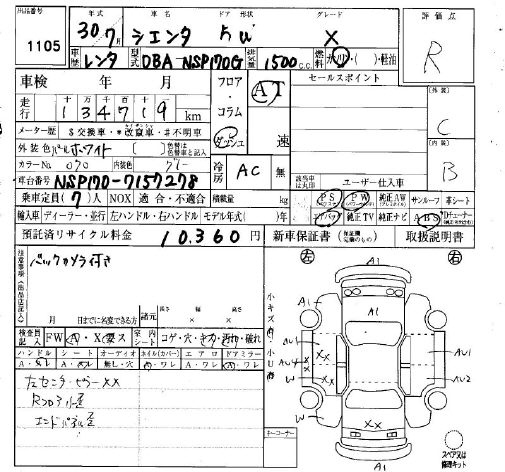 出品番号 年式 車名 ドア形状 グレード 評価点
1105 30.7月 シエンタ 5W X R
車歴 レンタ 型式 DBA-NSP170G 排気量 1500c.c. 燃料 ガソリン・( )・軽油
車検 年 月 フロア・コラム・ダッシュ AT 速 セールスポイント
走行 十万 万 千 百 十 一
134719km 外装 C
メーター歴 $交換車・*改竄車・#不明車
外装色 パールホワイト ( ) 色替車と記入
カラーNo. 070 内装色 グレー 冷房 AC 無 内装 B
車台番号 NSP170-7157278 ユーザー仕入車
乗車定員(7)人 NOX 適合・不適合 積載量 kg PS PW 純正AW サンルーフ 革シート
輸入車 ディーラー・並行 左ハンドル・右ハンドル モデル年式( )年 エアバッグ 純正TV 純正ナビ ABS
預託済リサイクル料金 10,360円 新車保証書 取扱説明書
バックカメラ付き
左 A1 右
月 日までに名変できる方 諸元 長さ 幅 高さ
検査員記入 FW シート コゲ・穴・キズ・汚れ・破れ
ハンドル シート オーディオ ホイル(カバー) エアロ ドアミラー
A・スレ A・スレ 無し・穴 A・ワレ A・ワレ A・ワレ
左センターピラーXX
Rフロアー歪
エンドパネル歪
小キズ有 小凹有
A1 A1 A1
AU1 XX AU1
AU4 X X AU2
W XX W
XX
A1 A1
キーコーナー
スペアタイヤ 修理キット